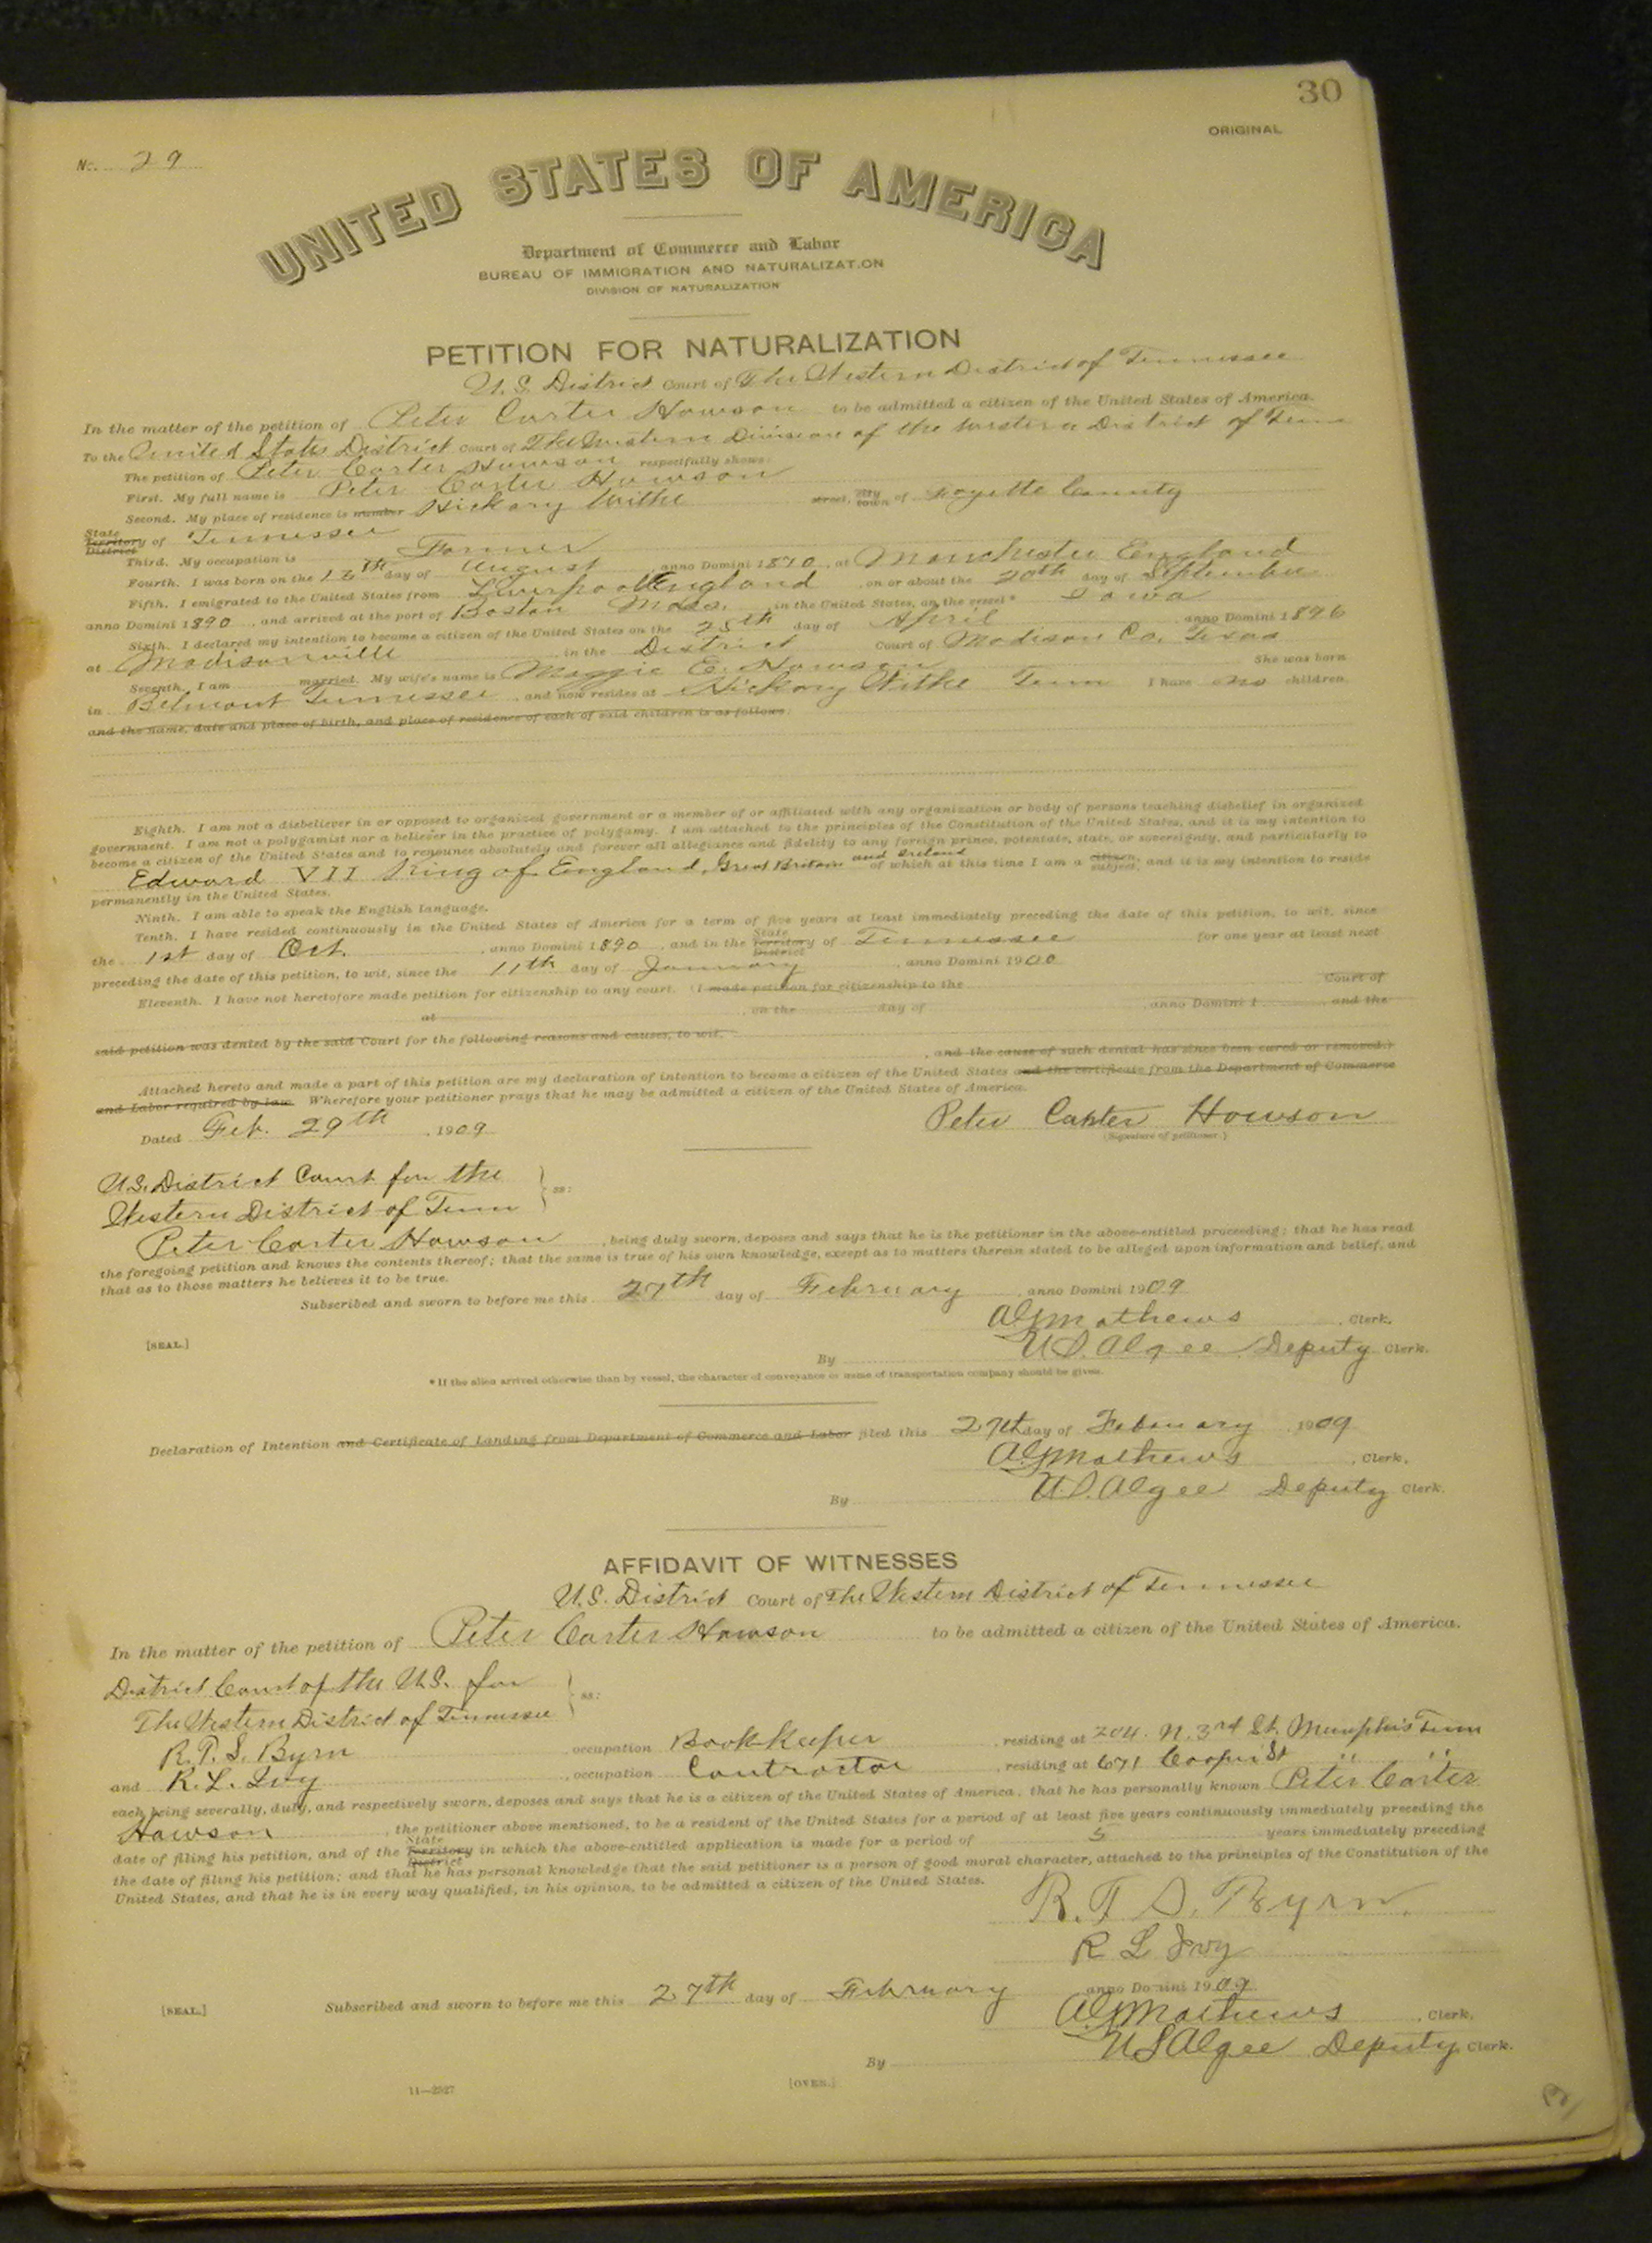 30
ORIGINAL
No. 29
UNITED STATES OF AMERICA
Department of Commerce and Labor
BUREAU OF IMMIGRATION AND NATURALIZATION
DIVISION OF NATURALIZATION
PETITION FOR NATURALIZATION
U.S. District Court of The Western District of Tennessee
In the matter of the petition of Peter Carter Howson to be admitted a citizen of the United States of America.
To the United States District Court of The Western Division of the Western District of Tenn
The petition of Peter Carter Howson respectfully shows:
First. My full name is Peter Carter Howson
Second. My place of residence is number Hickory Withe street, city town of Fayette County
State Territory District of Tennessee
Third. My occupation is Farmer
Fourth. I was born on the day of August, anno Domini 1870, at Manchester England
Fifth. I emigrated to the United States from Liverpool England on or about the 20th day of September
anno Domini 1890, and arrived at the port of Boston Mass. in the United States, on the vessel* Iowa
Sixth. I declared my intention to become a citizen of the United States on the 25th day of April anno Domini 1896
at Madisonville in the District Court of Madison Co. Texas
Seventh. I am married. My wife's name is Maggie E. Howson She was born
in Belmont Tennessee and now resides at Hickory Withe Tenn I have no children,
and the name, date and place of birth, and place of residence of each of said children is as follows:
Eighth. I am not a disbeliever in or opposed to organized government or a member of or affiliated with any organization or body of persons teaching disbelief in organized
government. I am not a polygamist nor a believer in the practice of polygamy. I am attached to the principles of the Constitution of the United States, and it is my intention to
become a citizen of the United States and to renounce absolutely and forever all allegiance and fidelity to any foreign prince, potentate, state, or sovereignty, and particularly to
Edward VII King of England, Great Britain and Ireland of which at this time I am a citizen, subject, and it is my intention to reside
permanently in the United States.
Ninth. I am able to speak the English language.
Tenth. I have resided continuously in the United States of America for a term of five years at least immediately preceding the date of this petition, to wit, since
the 1st day of Oct., anno Domini 1890, and in the State Territory District of Tennessee for one year at least next
preceding the date of this petition, to wit, since the 11th day of January, anno Domini 1900
Eleventh. I have not heretofore made petition for citizenship to any court. (I made petition for citizenship to the Court of
at, on the day of, anno Domini 1 and the
said petition was denied by the said Court for the following reasons and causes, to wit,
, and the cause of such denial has since been cured or removed.)
Attached hereto and made a part of this petition are my declaration of intention to become a citizen of the United States and the certificate from the Department of Commerce
and Labor required by law. Wherefore your petitioner prays that he may be admitted a citizen of the United States of America.
Peter Carter Howson
(Signature of petitioner.)
Dated Feb. 29th, 1909
U.S. District Court for the
Western District of Tenn } ss:
Peter Carter Howson, being duly sworn, deposes and says that he is the petitioner in the above-entitled proceeding; that he has read
the foregoing petition and knows the contents thereof; that the same is true of his own knowledge, except as to matters therein stated to be alleged upon information and belief, and
that as to those matters he believes it to be true.
Subscribed and sworn to before me this 27th day of February, anno Domini 1909
Mathews, Clerk.
[SEAL.]
By Algee Deputy Clerk.
*If the alien arrived otherwise than by vessel, the character of conveyance or name of transportation company should be given.
Declaration of Intention and Certificate of Landing from Department of Commerce and Labor filed this 27th day of February, 1909
Mathews, Clerk.
By Algee Deputy Clerk.
AFFIDAVIT OF WITNESSES
U.S. District Court of The Western District of Tennessee
In the matter of the petition of Peter Carter Howson to be admitted a citizen of the United States of America.
District Court of the U.S. for
The Western District of Tennessee } ss:
R.T.S. Byrn, occupation Book-Keeper, residing at 204 N. 3rd St. Memphis Tenn
and R.L. Ivy, occupation Contractor, residing at 671 Cooper St " "
each being severally, duly, and respectively sworn, deposes and says that he is a citizen of the United States of America, that he has personally known Peter Carter
Howson, the petitioner above mentioned, to be a resident of the United States for a period of at least five years continuously immediately preceding the
date of filing his petition, and of the State Territory District in which the above-entitled application is made for a period of 5 years immediately preceding
the date of filing his petition; and that he has personal knowledge that the said petitioner is a person of good moral character, attached to the principles of the Constitution of the
United States, and that he is in every way qualified, in his opinion, to be admitted a citizen of the United States.
R.T.S. Byrn.
R L Ivy
[SEAL.]
Subscribed and sworn to before me this 27th day of February anno Domini 1909
Mathews, Clerk.
By Algee Deputy Clerk.
11—2527
[OVER.]